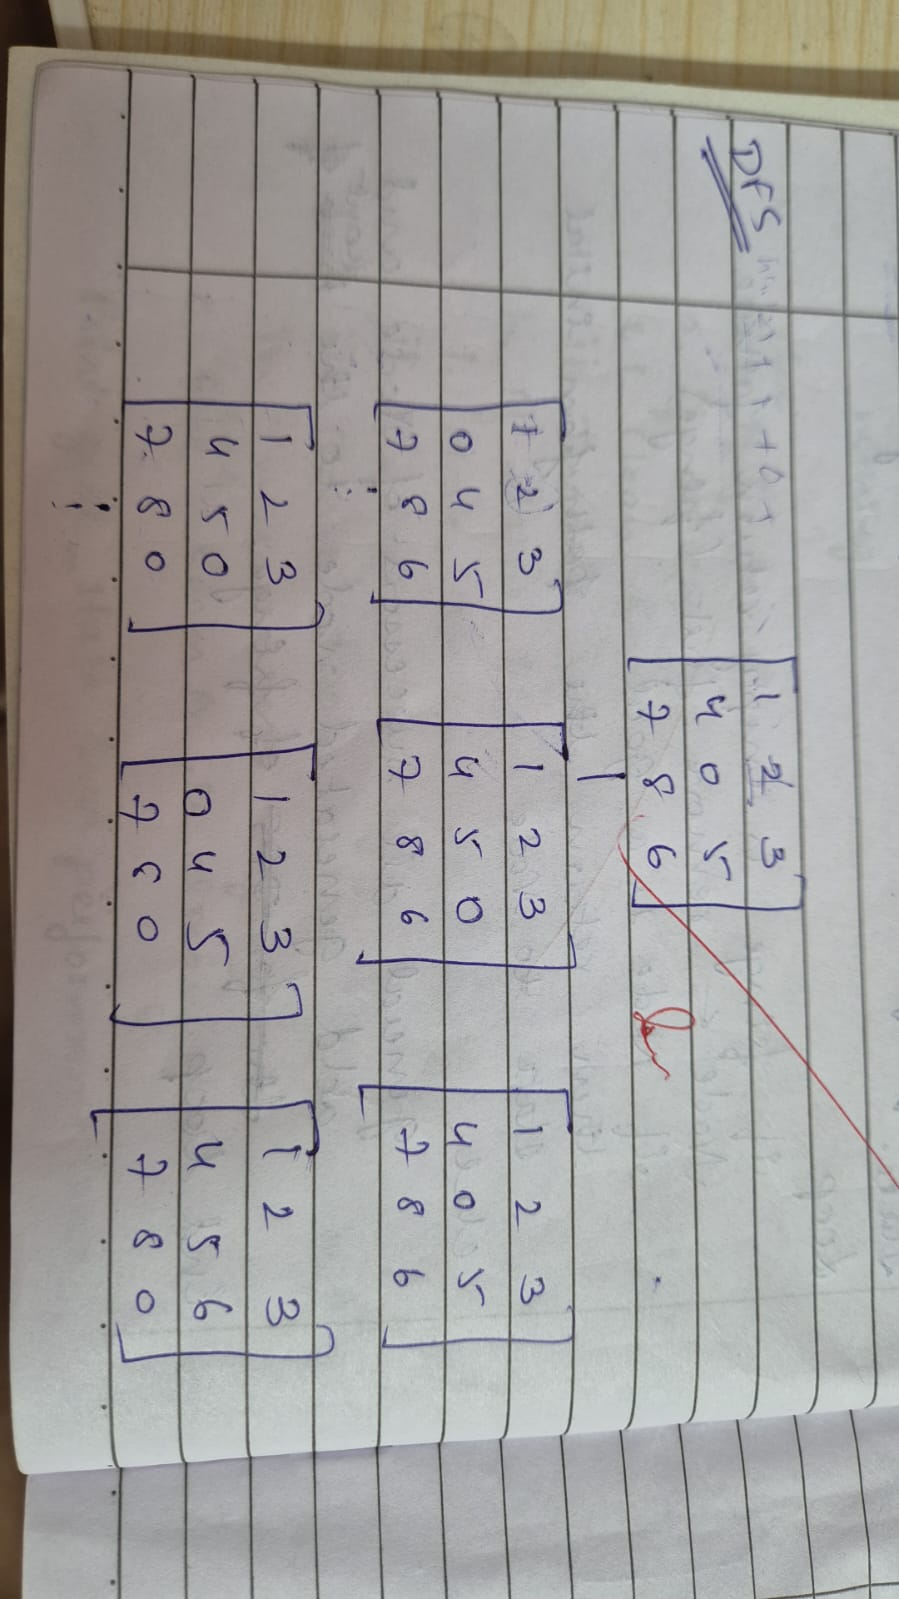 DFS
1 2 3
4 0 5
7 8 6
1 2 3
0 4 5
7 8 6
1 2 3
4 5 0
7 8 6
1 2 3
4 0 5
7 8 6
1 2 3
4 5 0
7 8 0
1 2 3
0 4 5
7 0
1 2 3
4 5 6
7 8 0